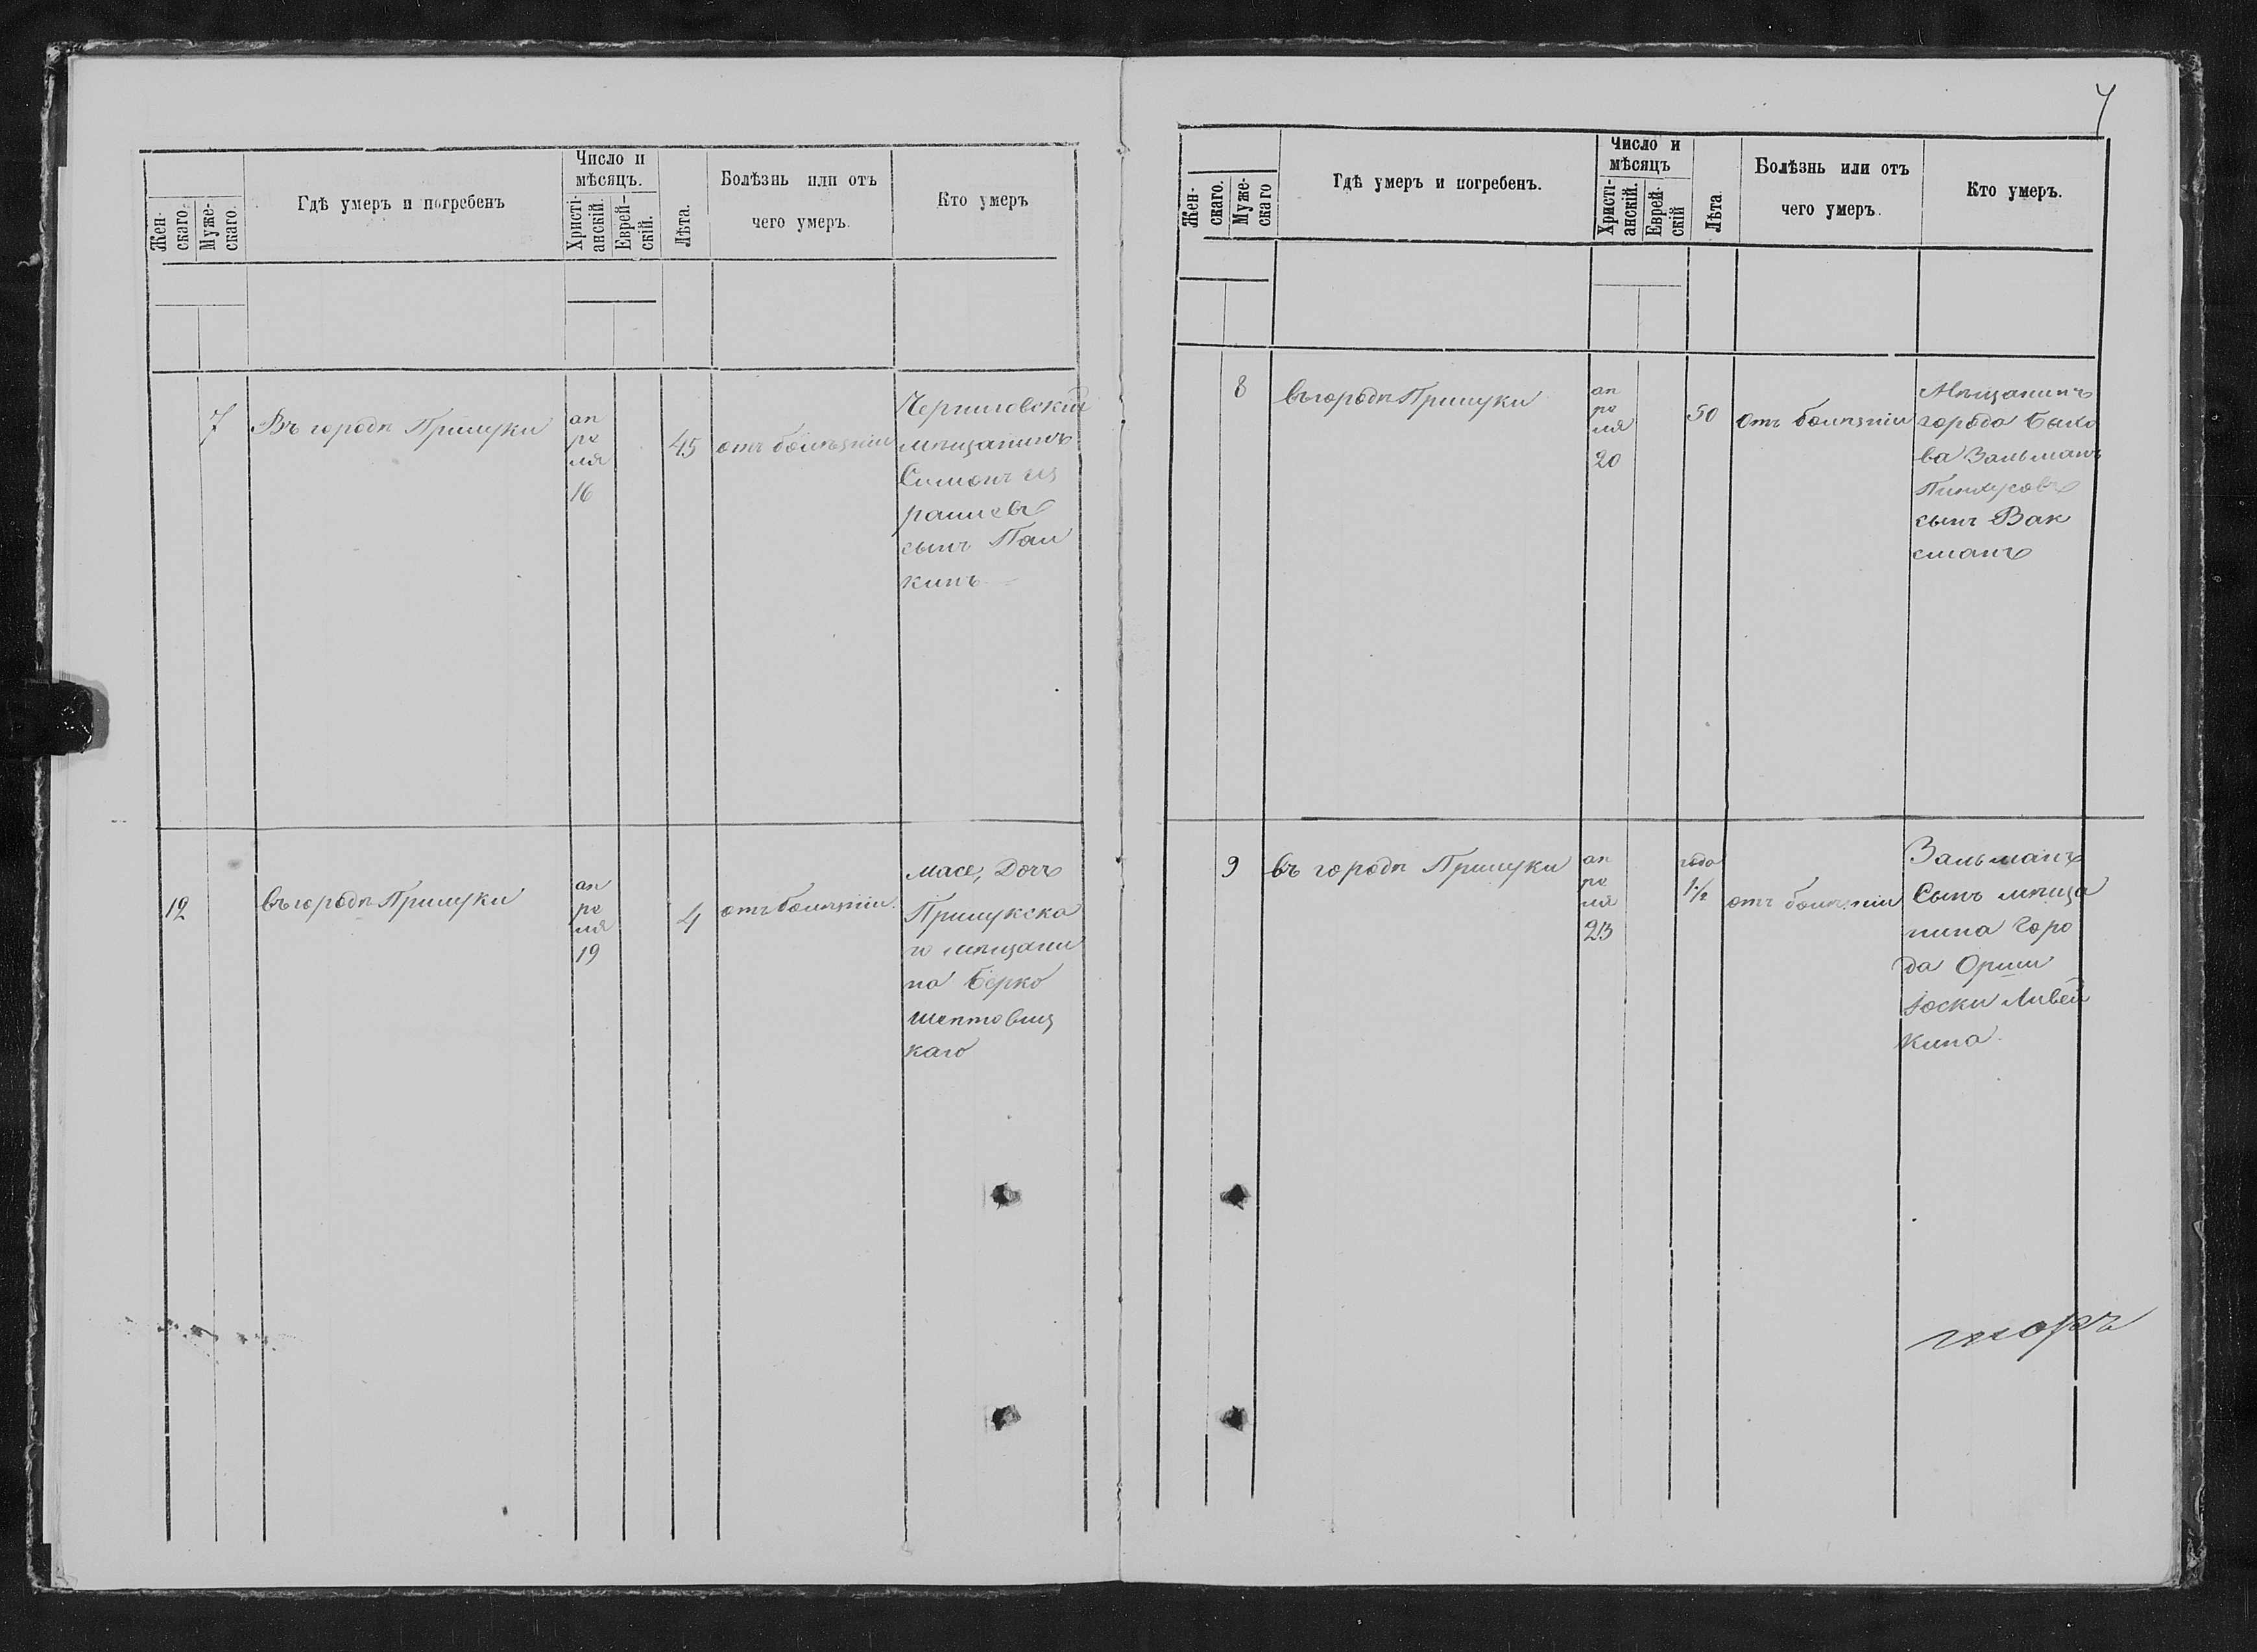 Жен-
скаго.
Муже-
скаго.
Гдѣ умеръ и погребенъ
Число и
мѣсяцъ.
Христі-
анскій.
Еврей-
скій.
Лѣта.
Болѣзнь или отъ
чего умеръ.
Кто умеръ
7
Въ городѣ Прилуки
ап
ре
ля
16
45
отъ болѣзніи
Черниговскій
мѣщанинъ
Симонъ из
раилевъ
сынъ Пал
кинъ
12
въ городѣ Прилуки
ап
ре
ля
19
4
отъ болѣзніи
масе, Дочъ
Прилукска
го мѣщани
на Берко
шептовиц
каго
7
Жен-
скаго.
Муже-
скаго
Гдѣ умеръ и погребенъ.
Число и
мѣсяцъ
Христі-
анскій.
Еврей-
скій
Лѣта
Болѣзнь или отъ
чего умеръ.
Кто умеръ.
8
въ городѣ Прилуки
ап
ре
ля
20
50
отъ болѣзніи
Мѣщанинъ
города Быхо
ва Зальманъ
Пинхусовъ
сынъ Вак
сманъ
9
въ городѣ Прилуки
ап
ре
ля
23
года
1½
отъ болѣзніи
Зальманъ
Сынъ мѣща
нина Горо
да Орши
Іоски Ливей
кина